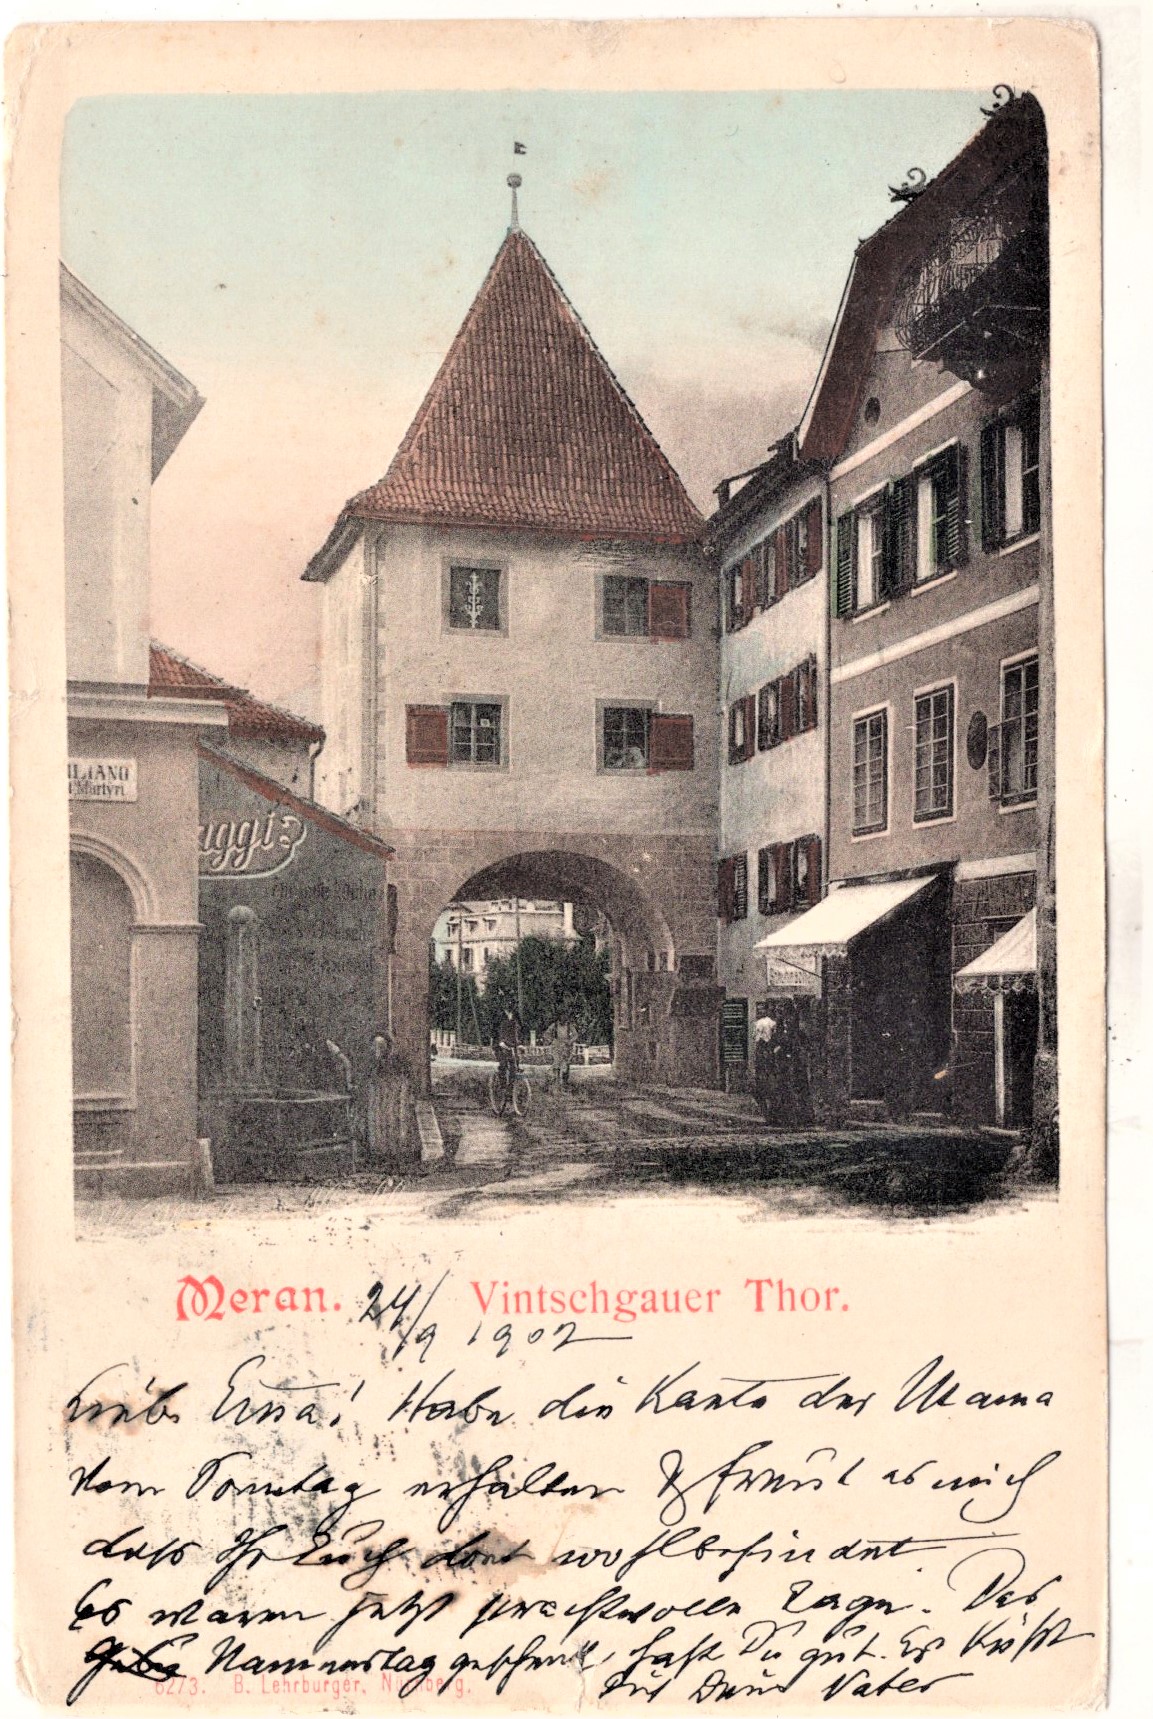 ILIANO
Martyri
aggi
Meran. 24/9 1902 Vintschgauer Thor.
Liebe Erna! Habe die Karte der Mama
vom Sonntag erhalten & freut es mich
dass Ihr Euch dort wohlbefindet
Es waren jetzt prachtvolle Tage. Das
Namenstaggeschenk, hast Du gut. Es küsst
Dich Dein Vater
6273. B. Lehrburger, Nürnberg.